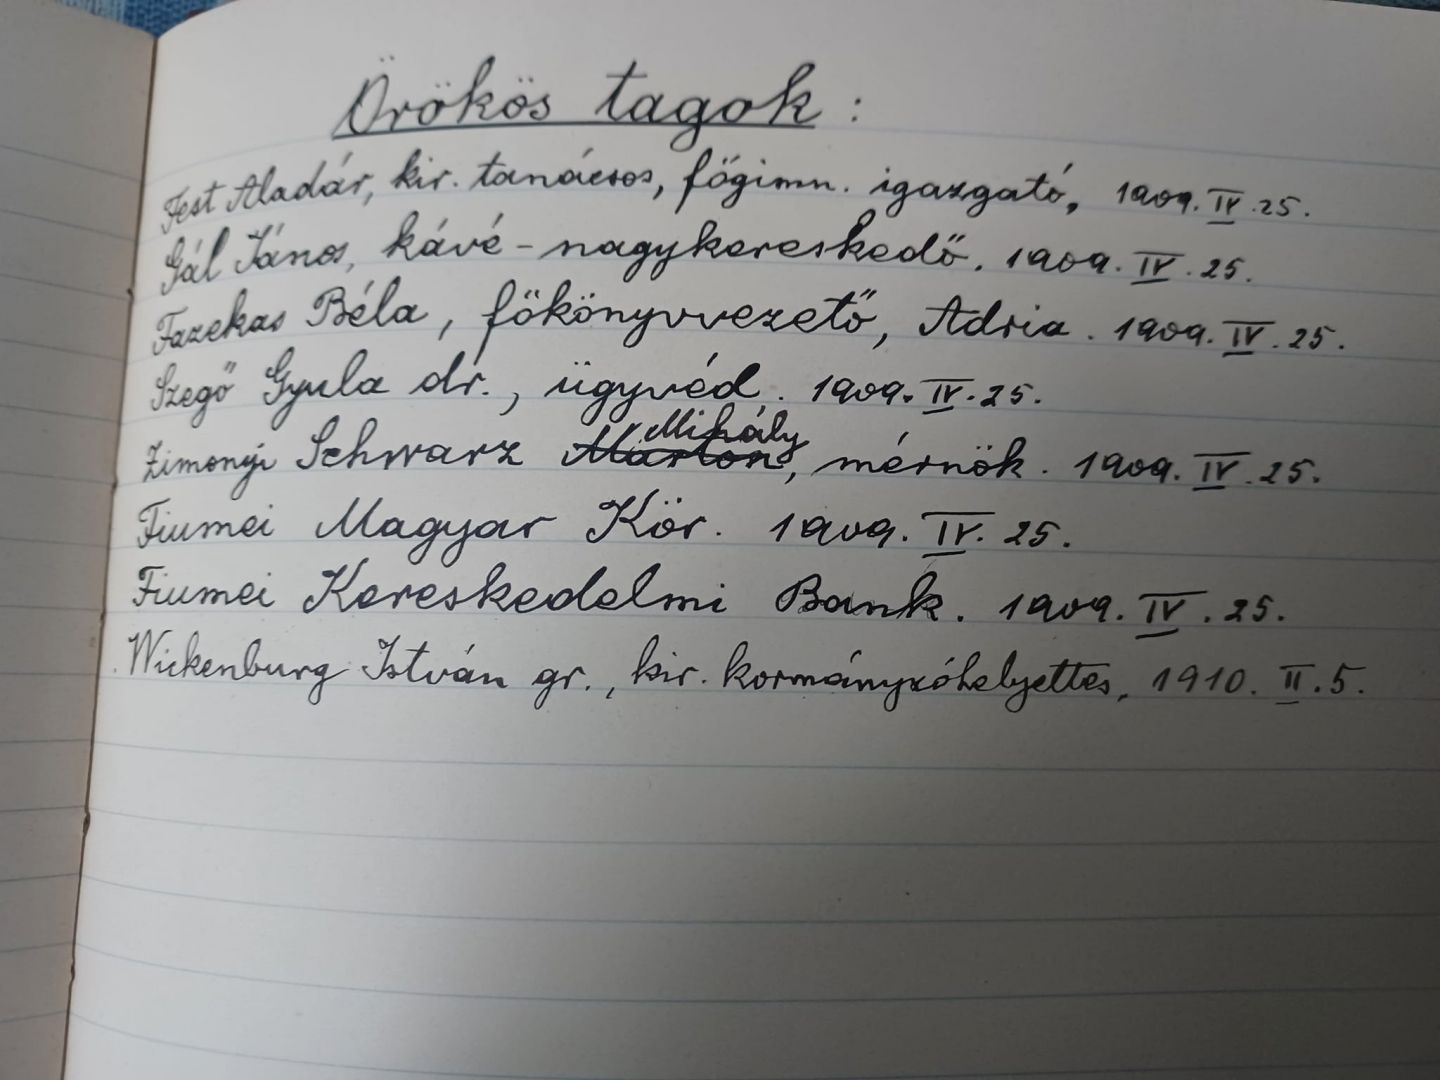 Örökös tagok :
Fest Aladár, kir. tanácsos, főgimn. igazgató, 1909. IV. 25.
Gál János, kávé-nagykereskedő. 1909. IV. 25.
Fazekas Béla, főkönyvvezető, Adria. 1909. IV. 25.
Szegő Gyula dr., ügyvéd. 1909. IV. 25.
Zimonyi Schwarz Márton Mihály, mérnök. 1909. IV. 25.
Fiumei Magyar Kör. 1909. IV. 25.
Fiumei Kereskedelmi Bank. 1909. IV. 25.
Wickenburg István gr., kir. kormányzóhelyettes, 1910. II. 5.